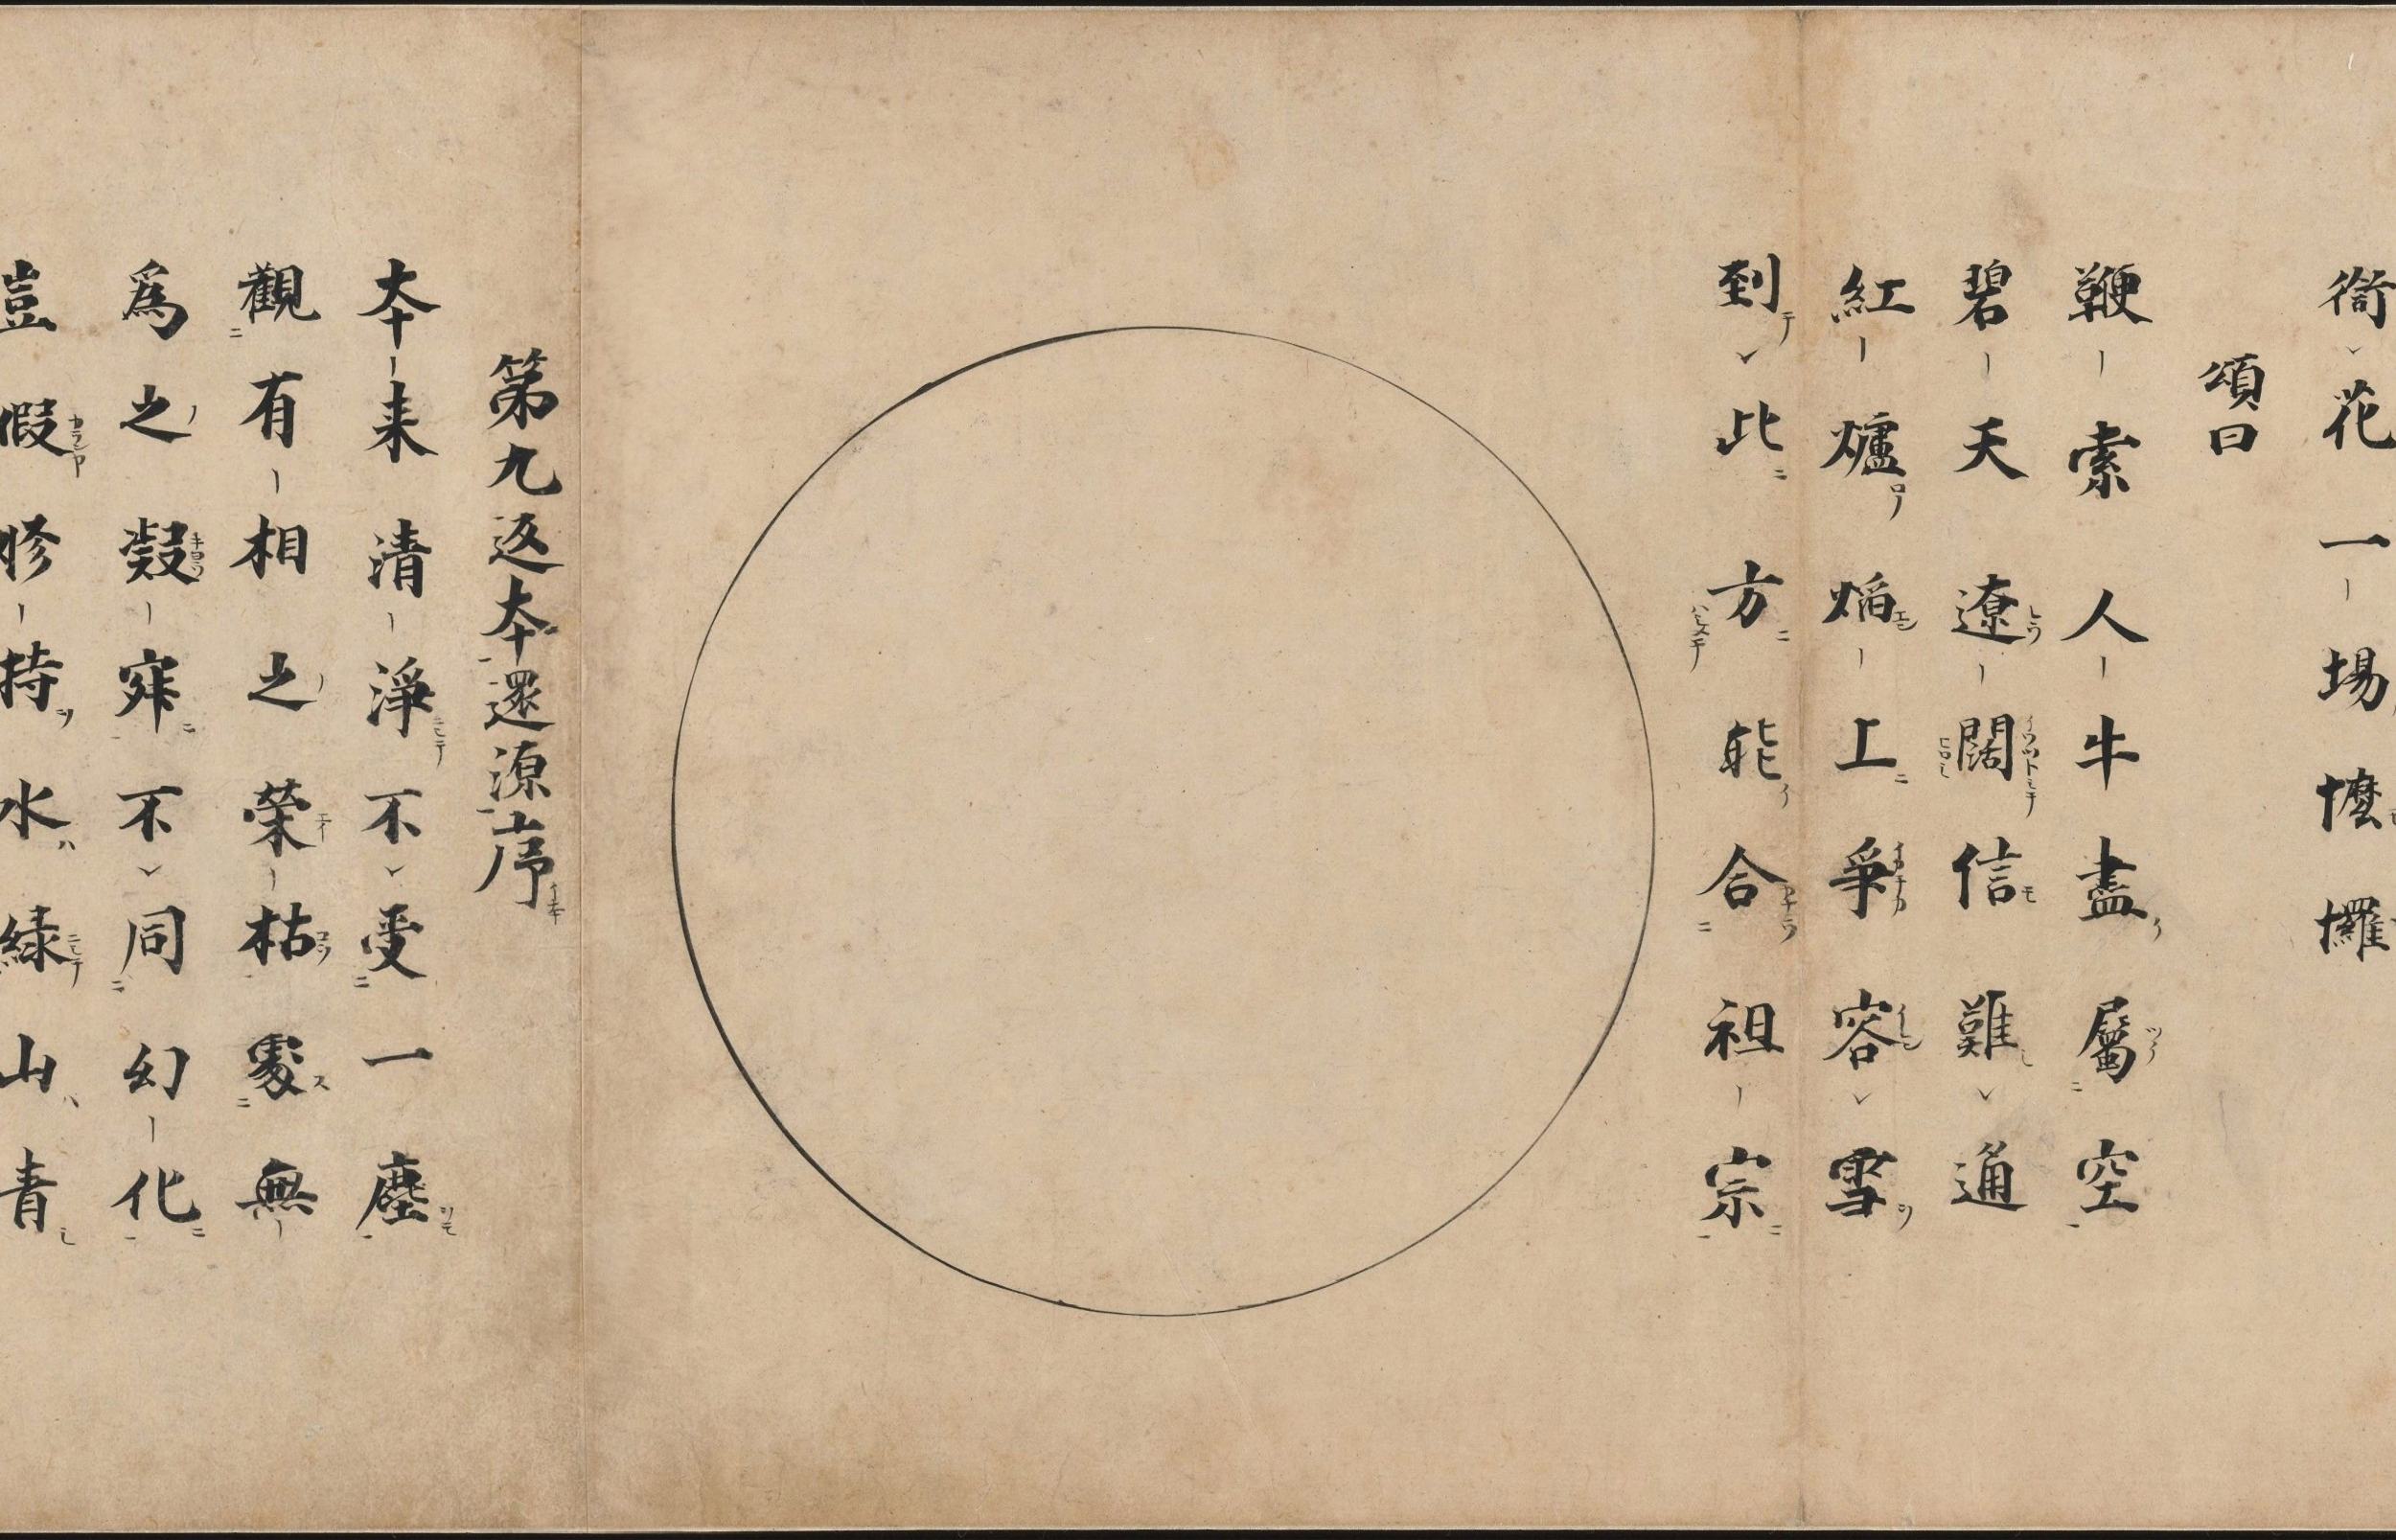 衘花一場懡㦬
頌曰
鞭索人牛盡屬空
碧天遼闊信難通
紅爐焰上爭容雪
到此方能合祖宗
第九返本還源序
本来清淨不受一塵
觀有相之榮枯處無
爲之凝寂不同幻化
豈假修持水緑山青